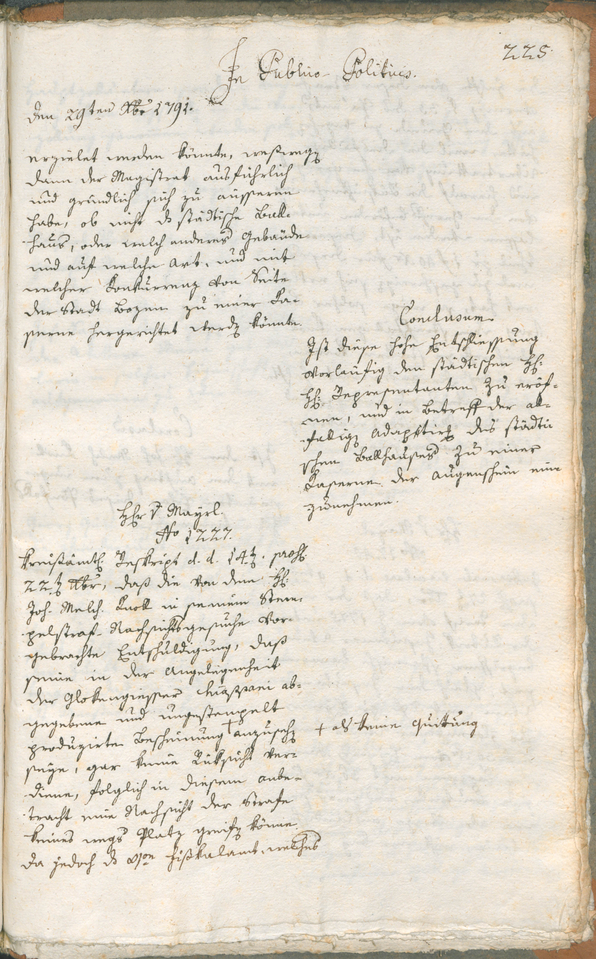 225.
In Publico-Politicis.
Den 29ten Xbr 1791.
erzielet werden könnte, weßwegen
dann der Magistrat ausführlich
und gründlich sich zu äusseren
habe, ob nicht das städtische Ball-
haus, oder welch anderes Gebäude
und auf welche Art, und mit
welcher Konkurrenz von Seite
der Stadt Bozen zu einer Ka-
serne hergerichtet werden könnte.
Conclusum.
Ist diese hohe Entschliessung
vorläufig den städtischen H.
H. Repraesentanten zu eröf-
nen, und in Betreff der al-
fälligen Adaptirung des städti-
schen Ballhauses zu einer
Kaserne der Augenschein ein-
zunehmen.
Hr. v. Mayrl
No 1227.
Kreisämtl. Reskript d. d. 14ten praes
22ten Xbr, daß die von dem H.
Joh. Melch. in seinem Stem-
pelstraf Nachsichtsgesuche vor-
gebrachte Entschuldigung, daß
seine in der Angelegenheit
der Glokengiesser abge-
gebene und ungestempelt
produzirten Bescheinung + anzusehen
seye, gar keine Rüksicht ver-
diene, folglich in diesem Anbe-
tracht eine Nachsicht der Strafe
keines wegs Platz greifen könne,
da jedoch das Fiskalamt, welches
+ als keine Quittung